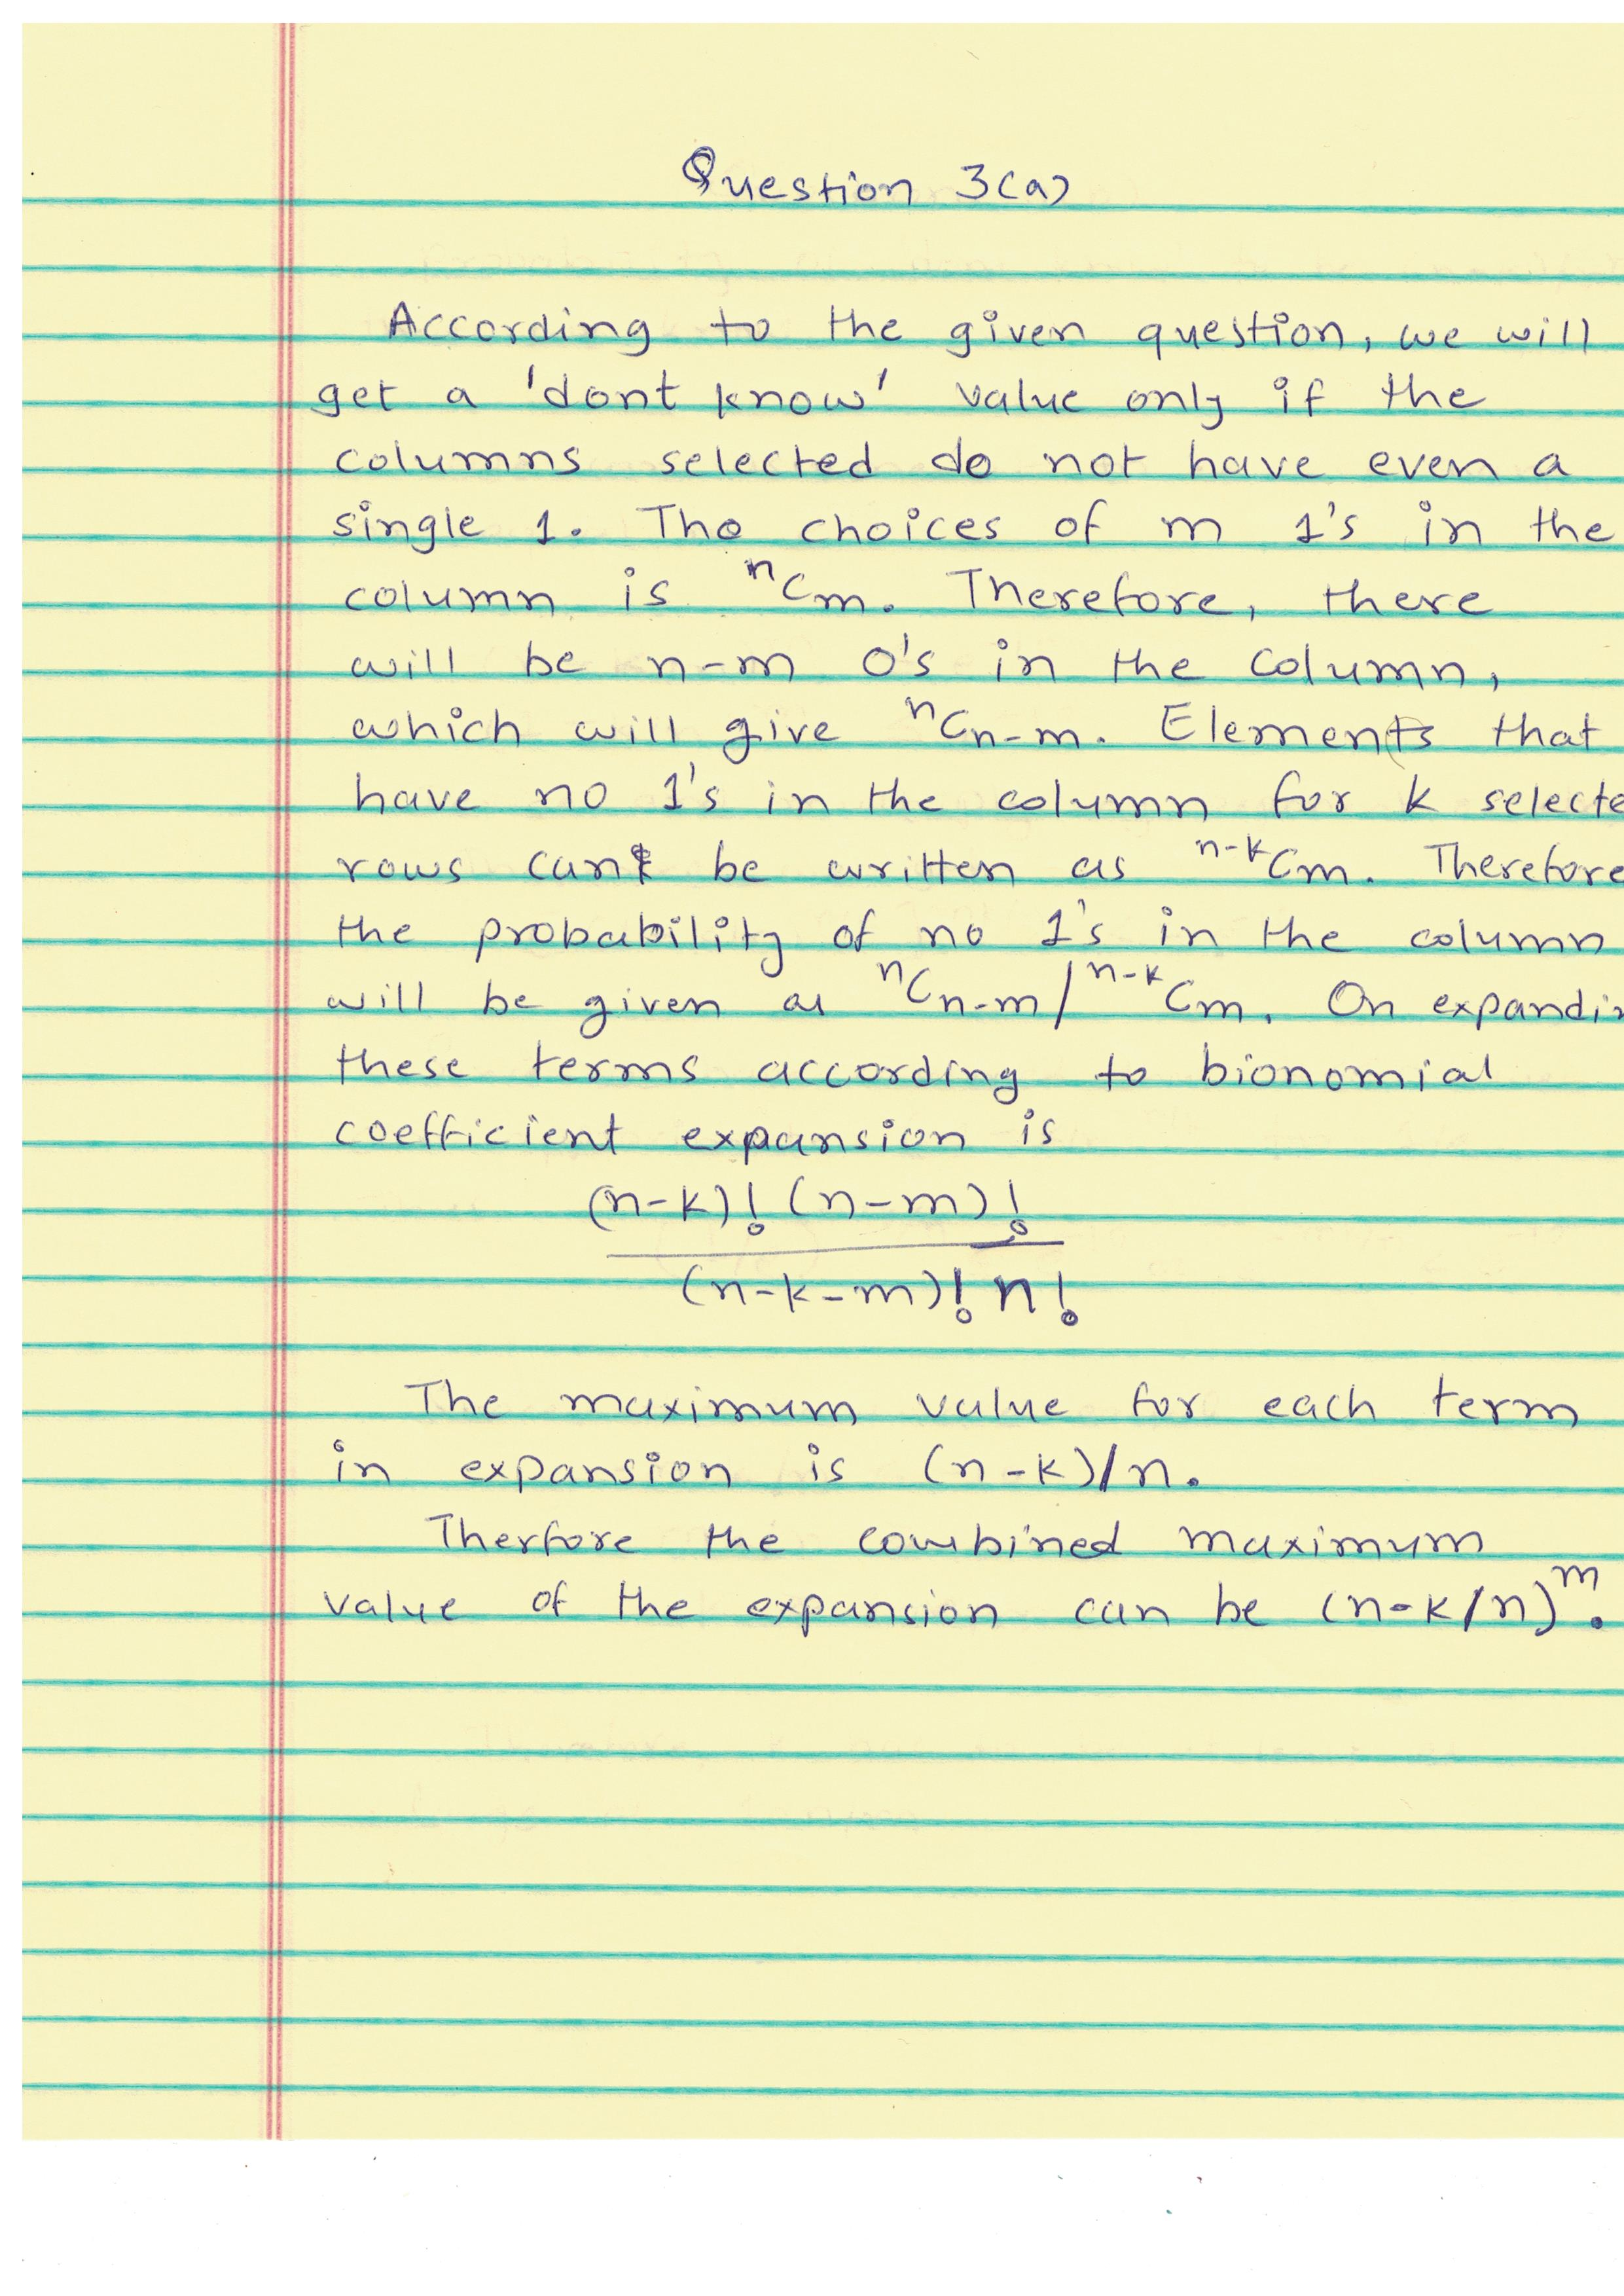 Question 3(a)
According to the given question, we will
get a 'dont know' value only if the
columns selected do not have even a
single 1. The choices of m 1's in the
column is ⁿCm. Therefore, there
will be n-m 0's in the column,
which will give ⁿCn-m. Elements that
have no 1's in the column for k selecte
rows can be written as ⁿ⁻ᵏCm. Therefore
the probability of no 1's in the column
will be given as ⁿCn-m/ⁿ⁻ᵏCm. On expandin
these terms according to bionomial
coefficient expansion is
(n-k)! (n-m)!
(n-k-m)! n!
The maximum value for each term
in expansion is (n-k)/n.
Therfore the combined maximum
value of the expansion can be (n-k/n)ᵐ.